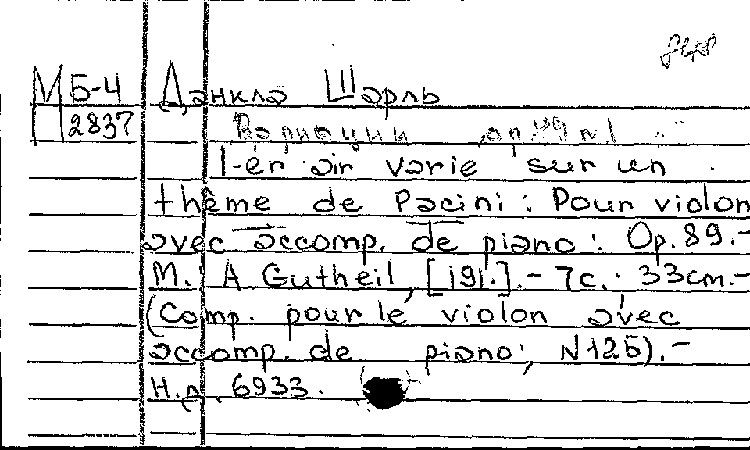 МБ-4 Данкла Шарль
П 2837 Вариации , ор. 89 №1
1-er air varie sur un
thème de Pacini: Pour violon
avec accomp. de piano: Op. 89.-
М.: A. Gutheil, [191.].- 7с.; 33cm.-
(Comp. pour le violon avec
accomp. de piano; N12б).-
Н.д. 6933.